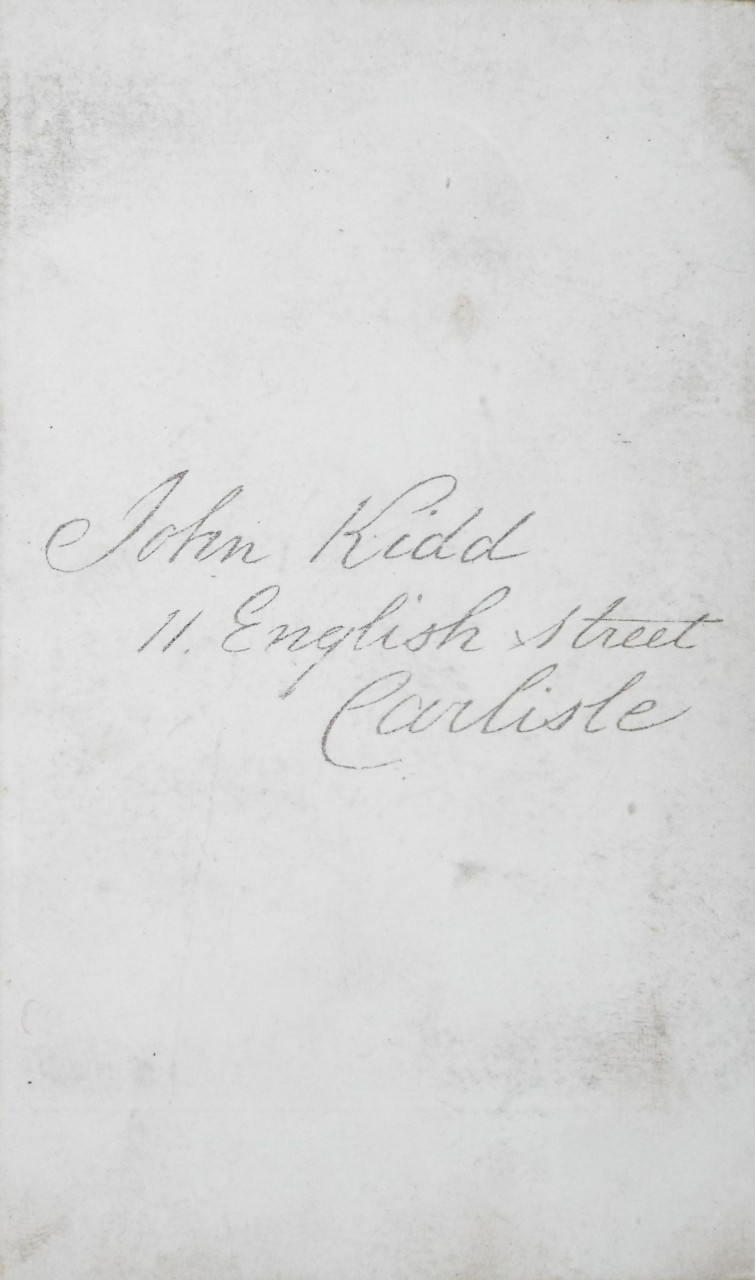 John Kidd
11. English Street
Carlisle